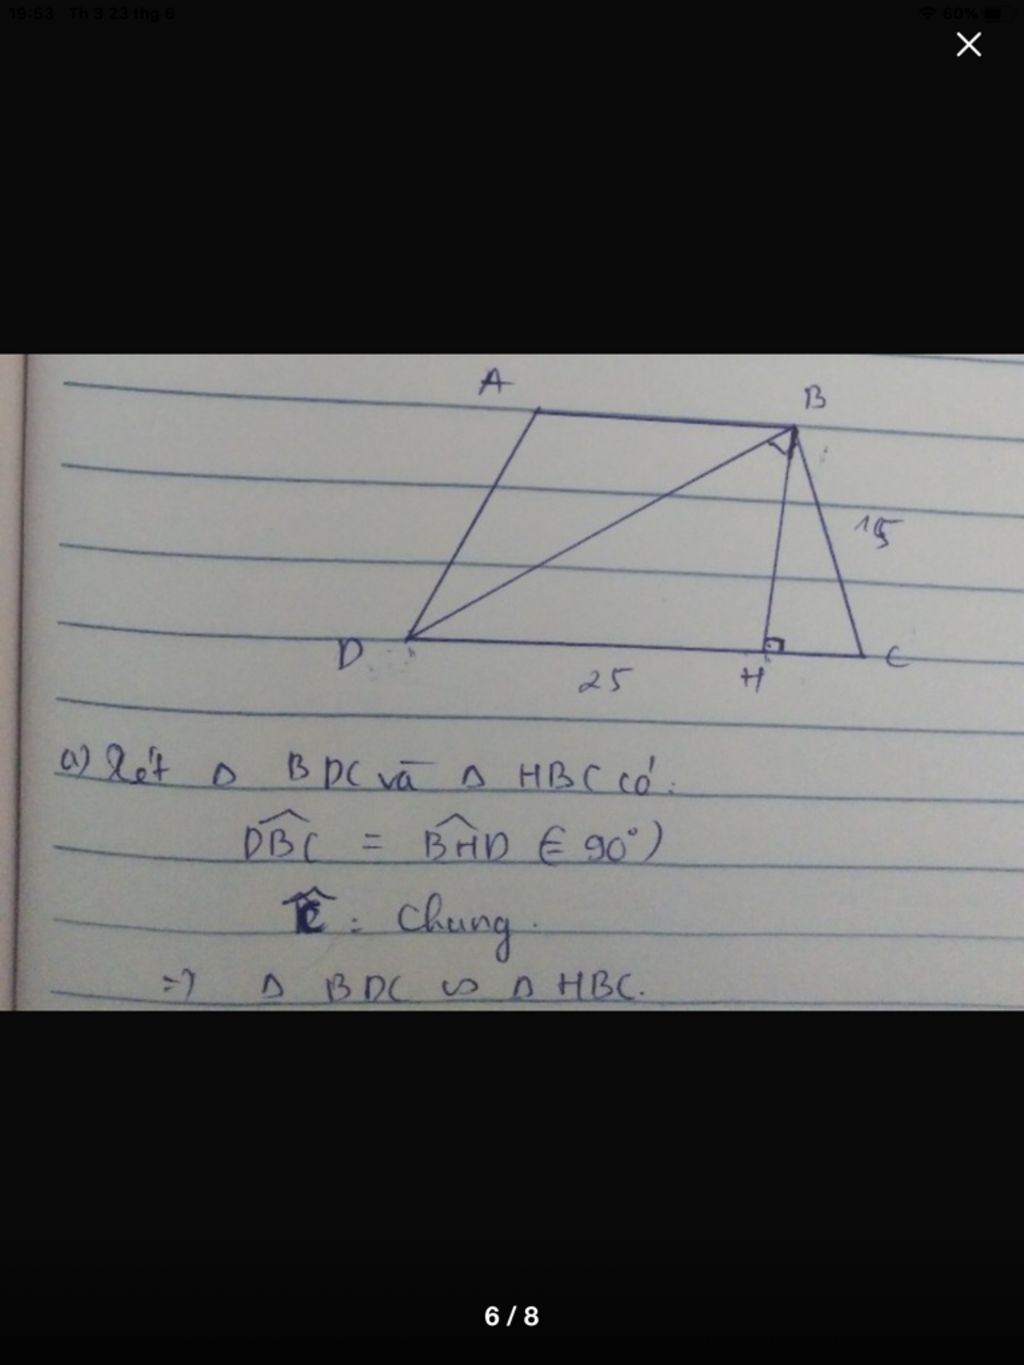 19:53 Th 3 23 thg 6
60%
A
B
15
D
25
H
C
a) Xét Δ BDC và Δ HBC có:
DBC = BHD (= 90°)
C : Chung.
=> Δ BDC ∽ Δ HBC.
6 / 8